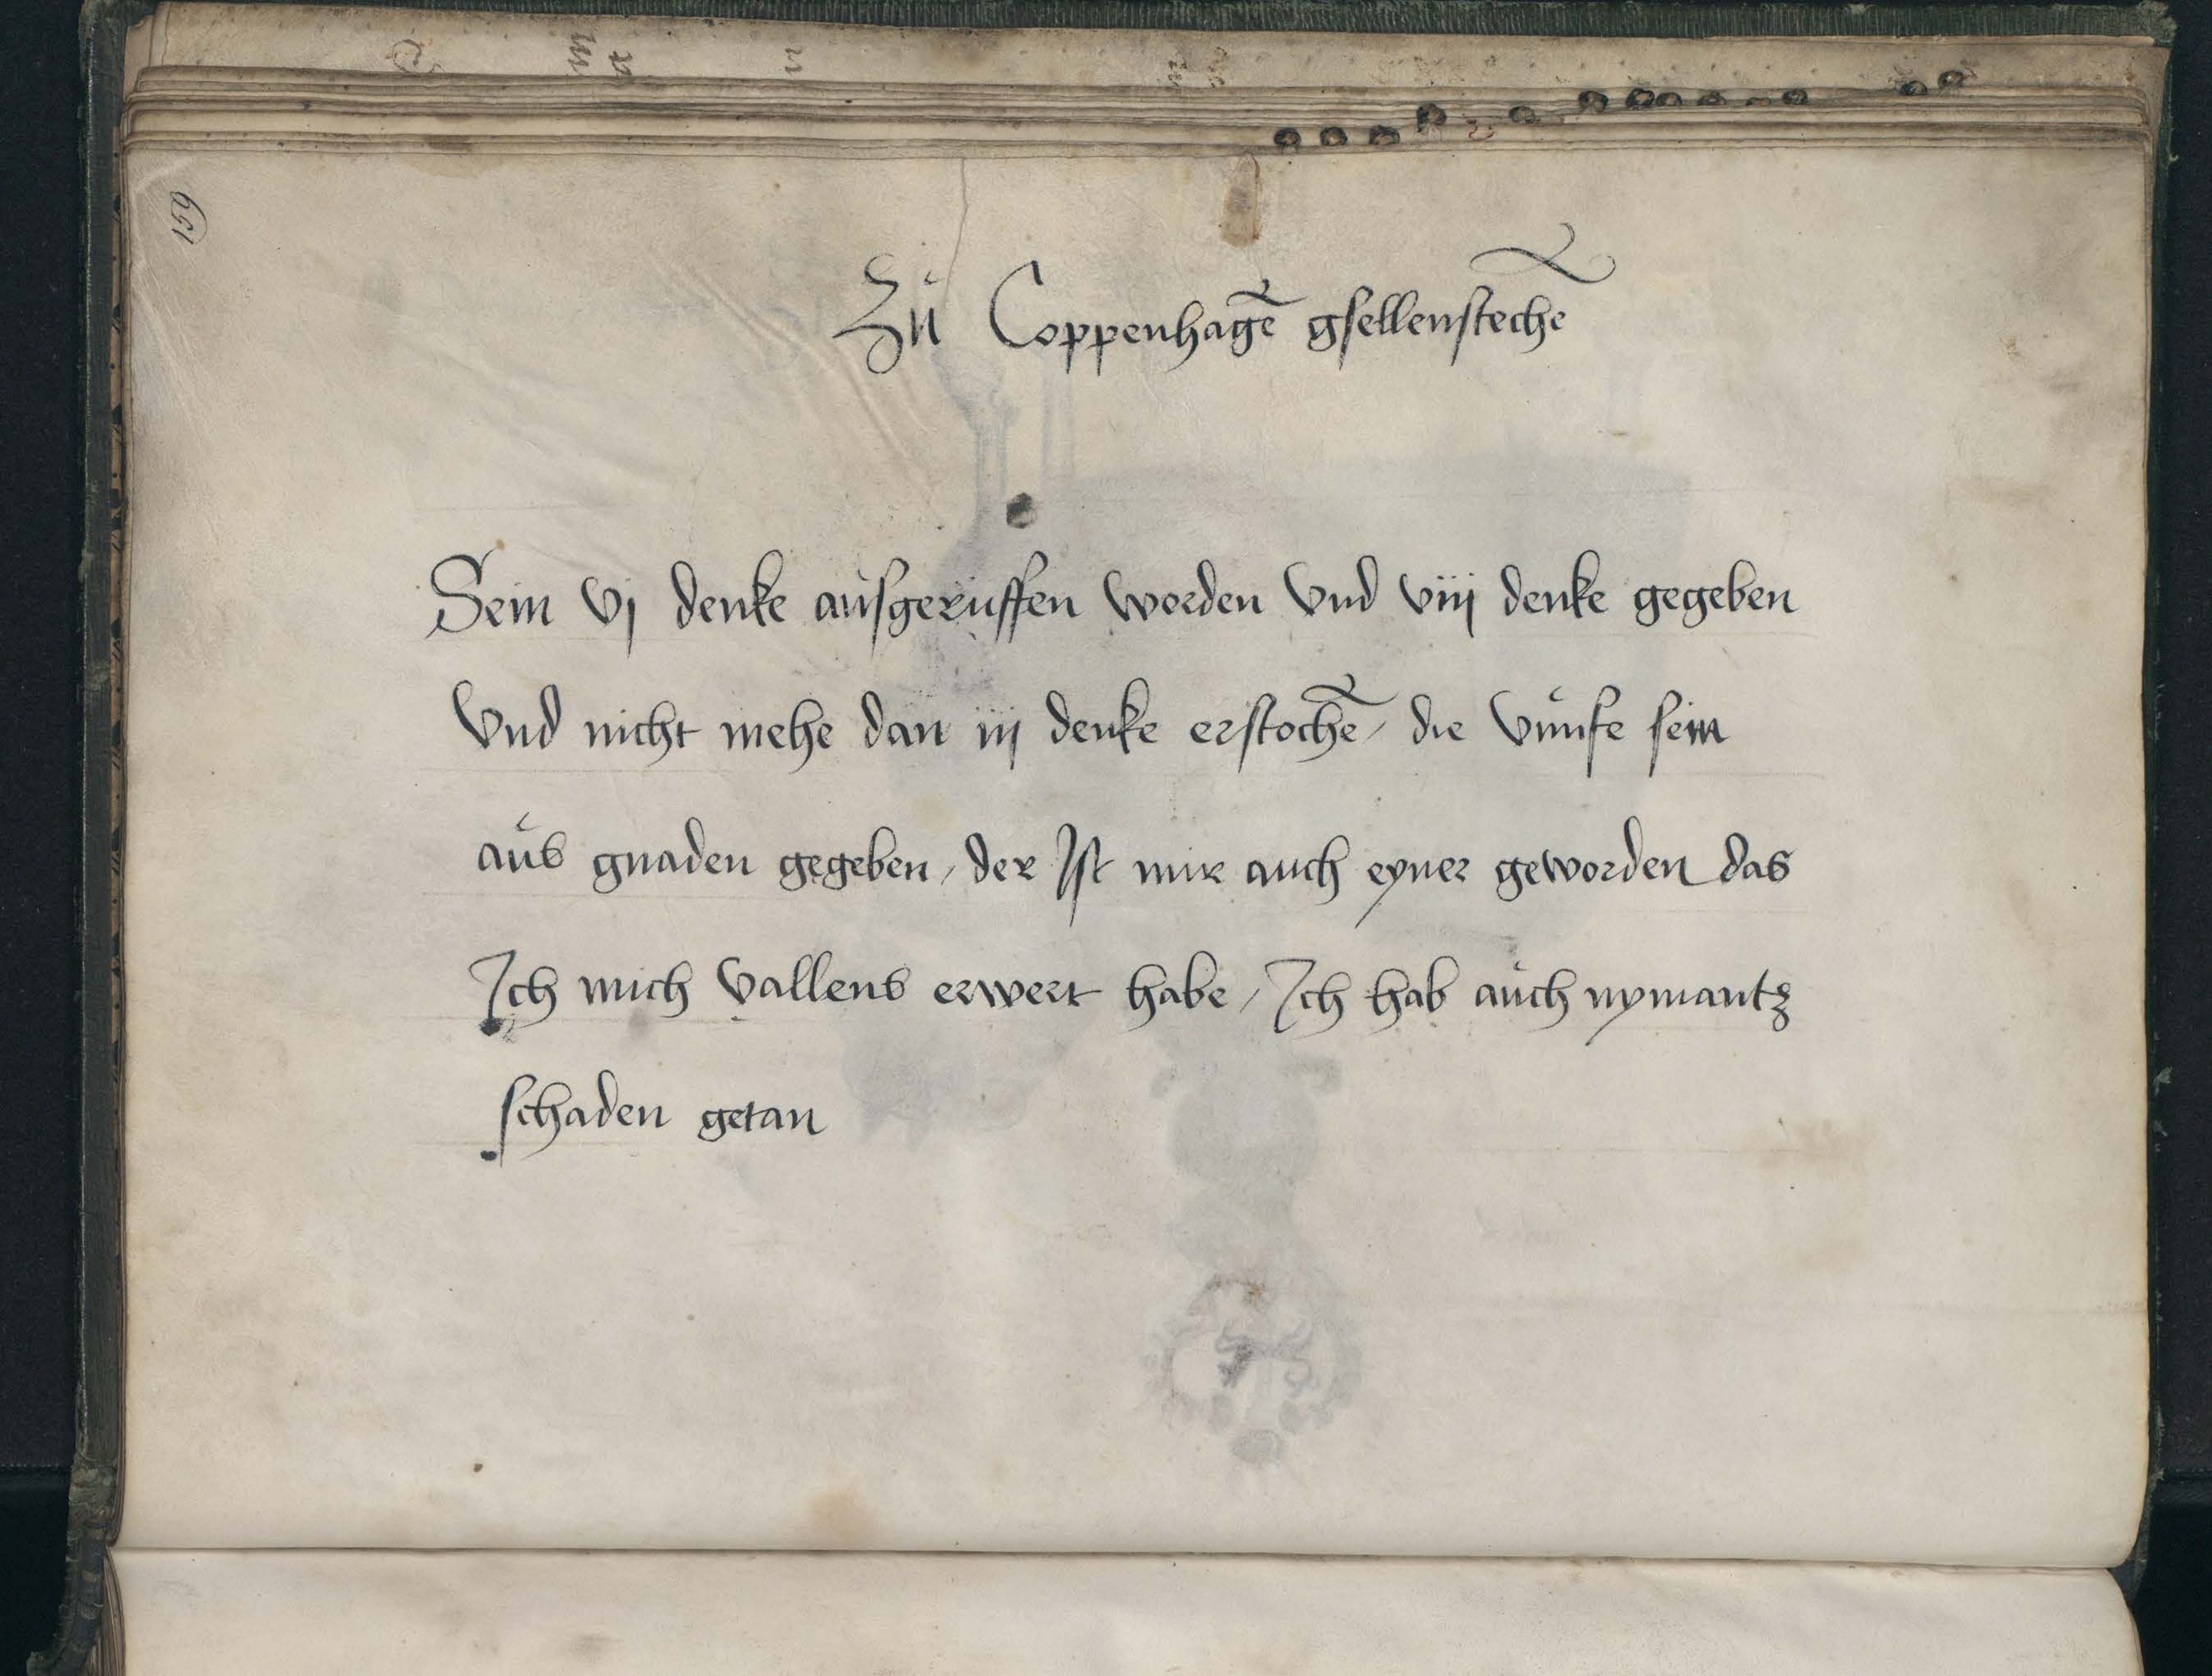 159
Zů Coppenhagē gsellenstechē
Sein vj denke ausgeruffen worden vnd viij denke gegeben
vnd nicht mehe dan iij denke erstochē / die vůnfe sein
aůs gnaden gegeben / der Ist mir auch eyner geworden das
Ich mich vallens erwert habe / Ich hab aůch nymantz
schaden getan